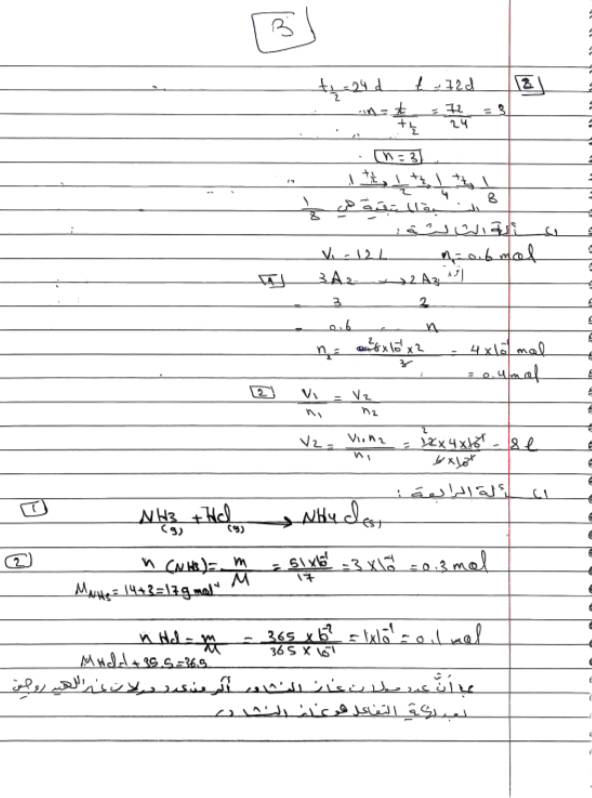 3
[2] t½ = 24 d t = 72 d
n = t/t½ = 72/24 = 3
n = 3
1 →t½ 1/2 →t½ 1/4 →t½ 1/8
النسبة المتبقية هي 1/8
المسألة الثالثة:
V₁ = 12 L n₁ = 0.6 mol
[1] 3A₂ → 2A₃
3 2
0.6 n
n₂ = 6×10⁻¹×2/3 = 4×10⁻¹ mol
= 0.4 mol
[2] V₁/n₁ = V₂/n₂
V₂ = V₁.n₂/n₁ = 12×4×10⁻¹/6×10⁻¹ = 8 l
المسألة الرابعة:
[1] NH3(g) + Hcl(g) → NH4 cl(s)
[2] n (NH3) = m/M = 51×10⁻¹/17 = 3×10⁻¹ = 0.3 mol
M NH3 = 14+3 = 17 g mol⁻¹
n Hcl = m/M = 365×10⁻²/365×10⁻¹ = 1×10⁻¹ = 0.1 mol
M Hcl = 1 + 35.5 = 36.5
بما أنَّ عدد مولات غاز النشادر أكبر من عدد مولات غاز
التفاعل هو غاز النشادر